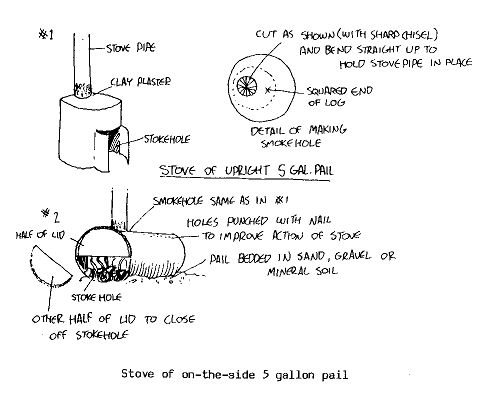 #1
STOVE PIPE
CLAY PLASTER
STOKEHOLE
CUT AS SHOWN (WITH SHARP CHISEL)
AND BEND STRAIGHT UP TO
HOLD STOVEPIPE IN PLACE
SQUARED END
OF LOG
DETAIL OF MAKING
SMOKEHOLE
STOVE OF UPRIGHT 5 GAL. PAIL
#2
SMOKEHOLE SAME AS IN #1
HALF OF LID
HOLES PUNCHED WITH NAIL
TO IMPROVE ACTION OF STOVE
PAIL BEDDED IN SAND, GRAVEL OR
MINERAL SOIL
STOKE HOLE
OTHER HALF OF LID TO CLOSE
OFF STOKEHOLE
Stove of on-the-side 5 gallon pail